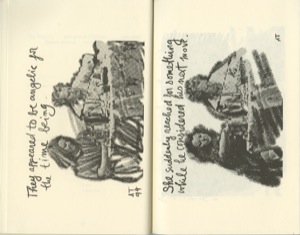 They appeared to be angelic for
the time being
AT
94
She suddenly reached for something
while he considered his next move.
AT